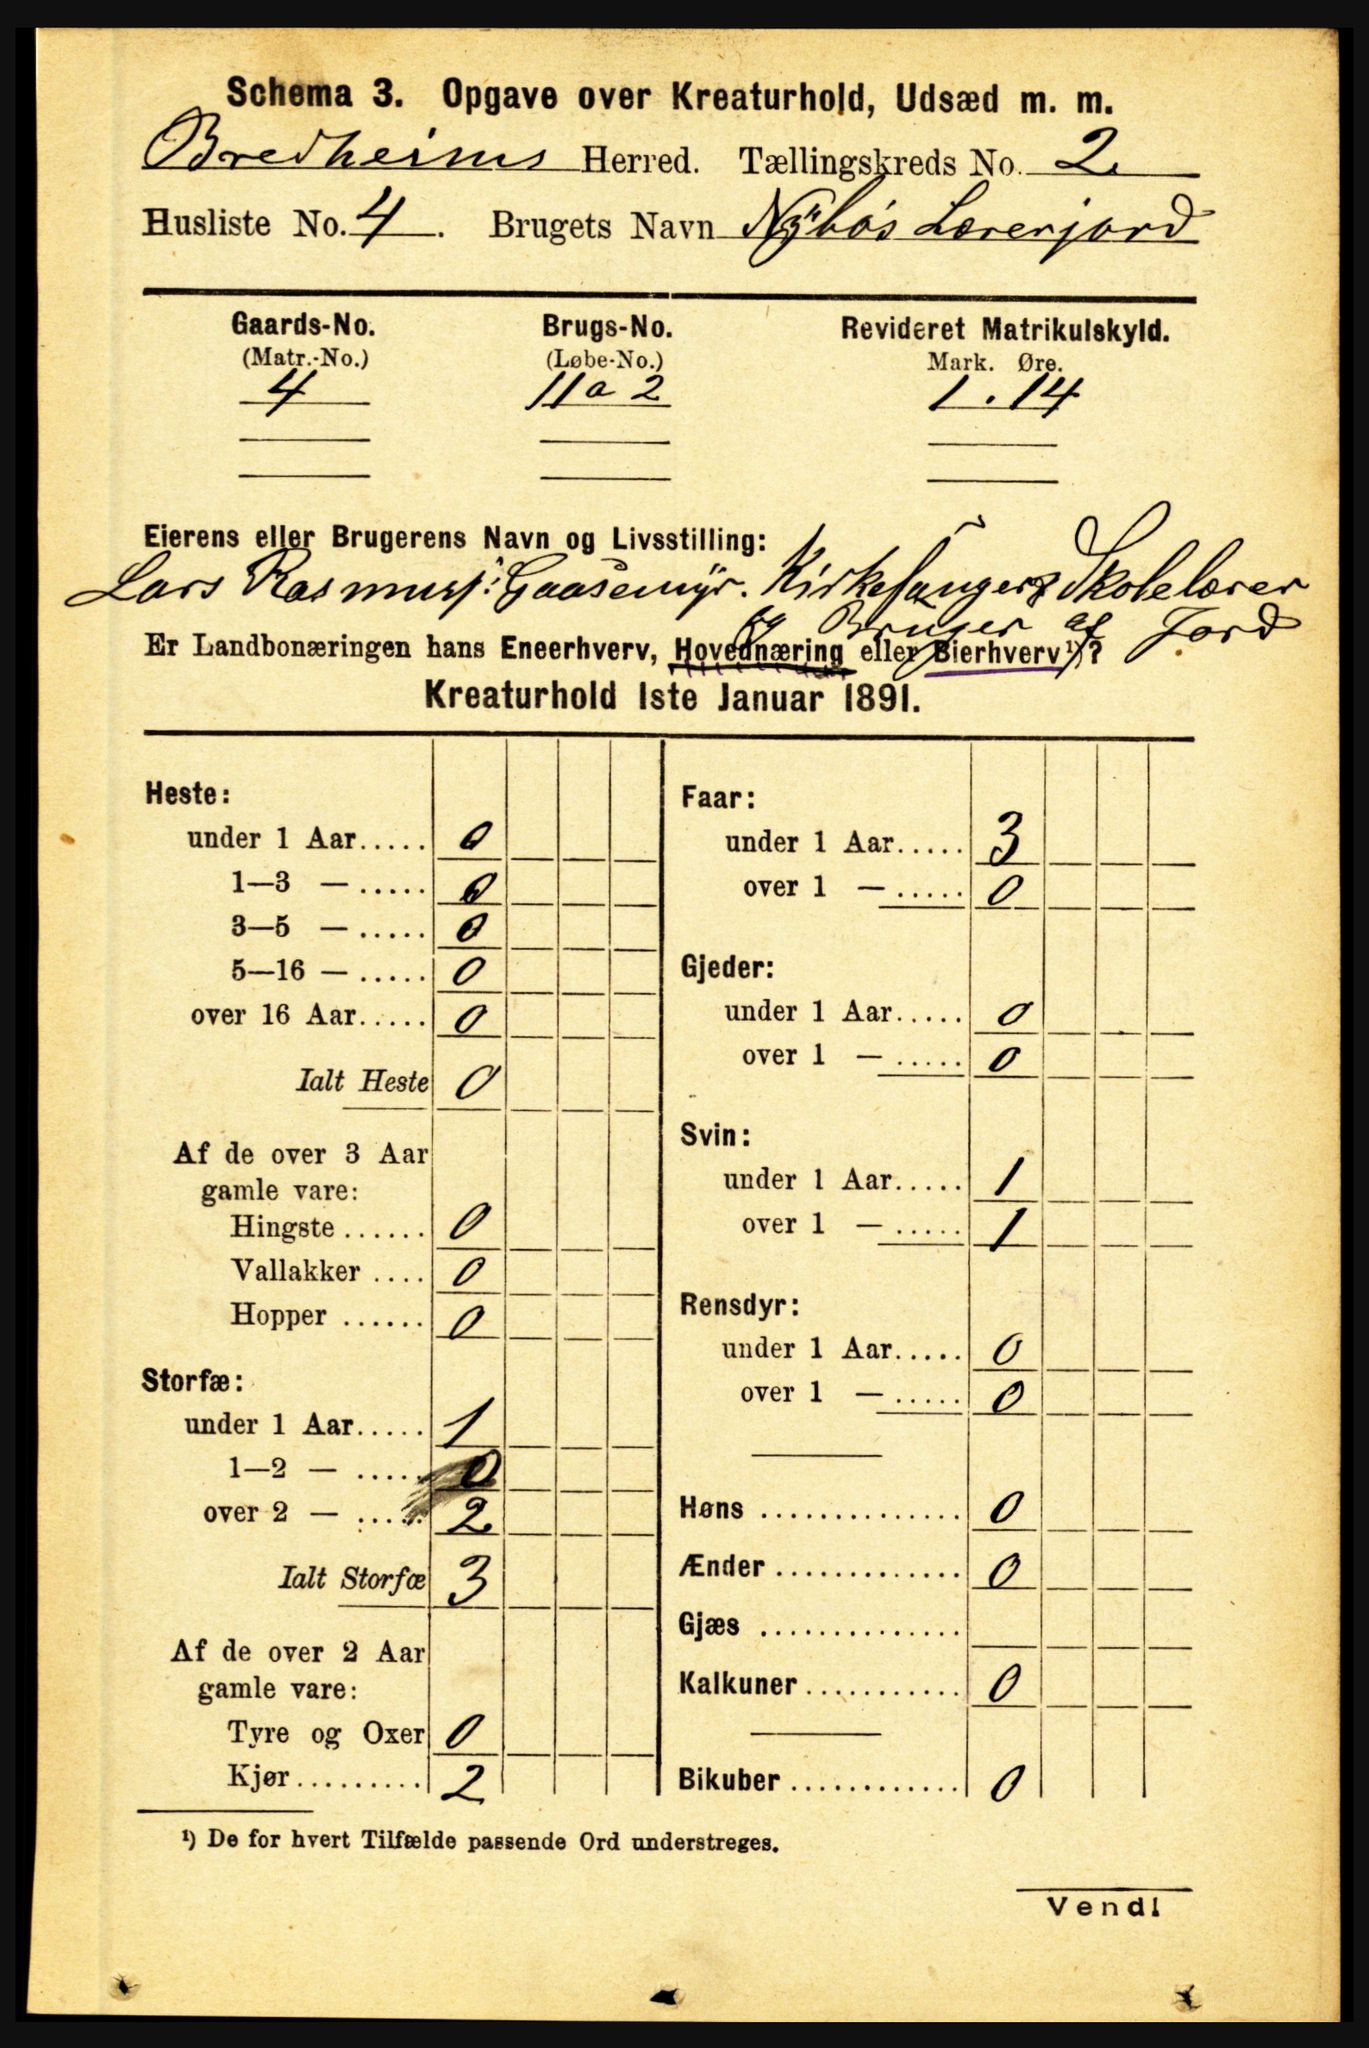 Schema 3. Opgave over Kreaturhold, Udsæd m. m.
Bredheims Herred. Tællingskreds No. 2.
Husliste No. 4. Brugets Navn Nybøs Lærerjord
Gaards-No. Brugs-No. Revideret Matrikulskyld.
(Matr.-No.) (Løbe-No.) Mark. Øre.
4 11 a 2 1 . 14
Eierens eller Brugerens Navn og Livsstilling:
Lars Rasmuss: Gaasemyr. Kirkesanger & Skolelærer
og Bruger af Jord
Er Landbonæringen hans Eneerhverv, Hovednæring eller Bierhverv ¹)?
Kreaturhold 1ste Januar 1891.
Heste:
under 1 Aar..... 0
1—3 — ..... 0
3—5 — ..... 0
5—16 — ..... 0
over 16 Aar..... 0
Ialt Heste 0
Af de over 3 Aar
gamle vare:
Hingste ...... 0
Vallakker .... 0
Hopper ...... 0
Storfæ:
under 1 Aar..... 1
1—2 — ..... 0
over 2 — ..... 2
Ialt Storfæ 3
Af de over 2 Aar
gamle vare:
Tyre og Oxer 0
Kjør......... 2
Faar:
under 1 Aar..... 3
over 1 — ..... 0
Gjeder:
under 1 Aar..... 0
over 1 — ..... 0
Svin:
under 1 Aar..... 1
over 1 — ..... 1
Rensdyr:
under 1 Aar..... 0
over 1 — ..... 0
Høns .............. 0
Ænder ............. 0
Gjæs ..............
Kalkuner ........... 0
Bikuber ............ 0
¹) De for hvert Tilfælde passende Ord understreges.
Vend!